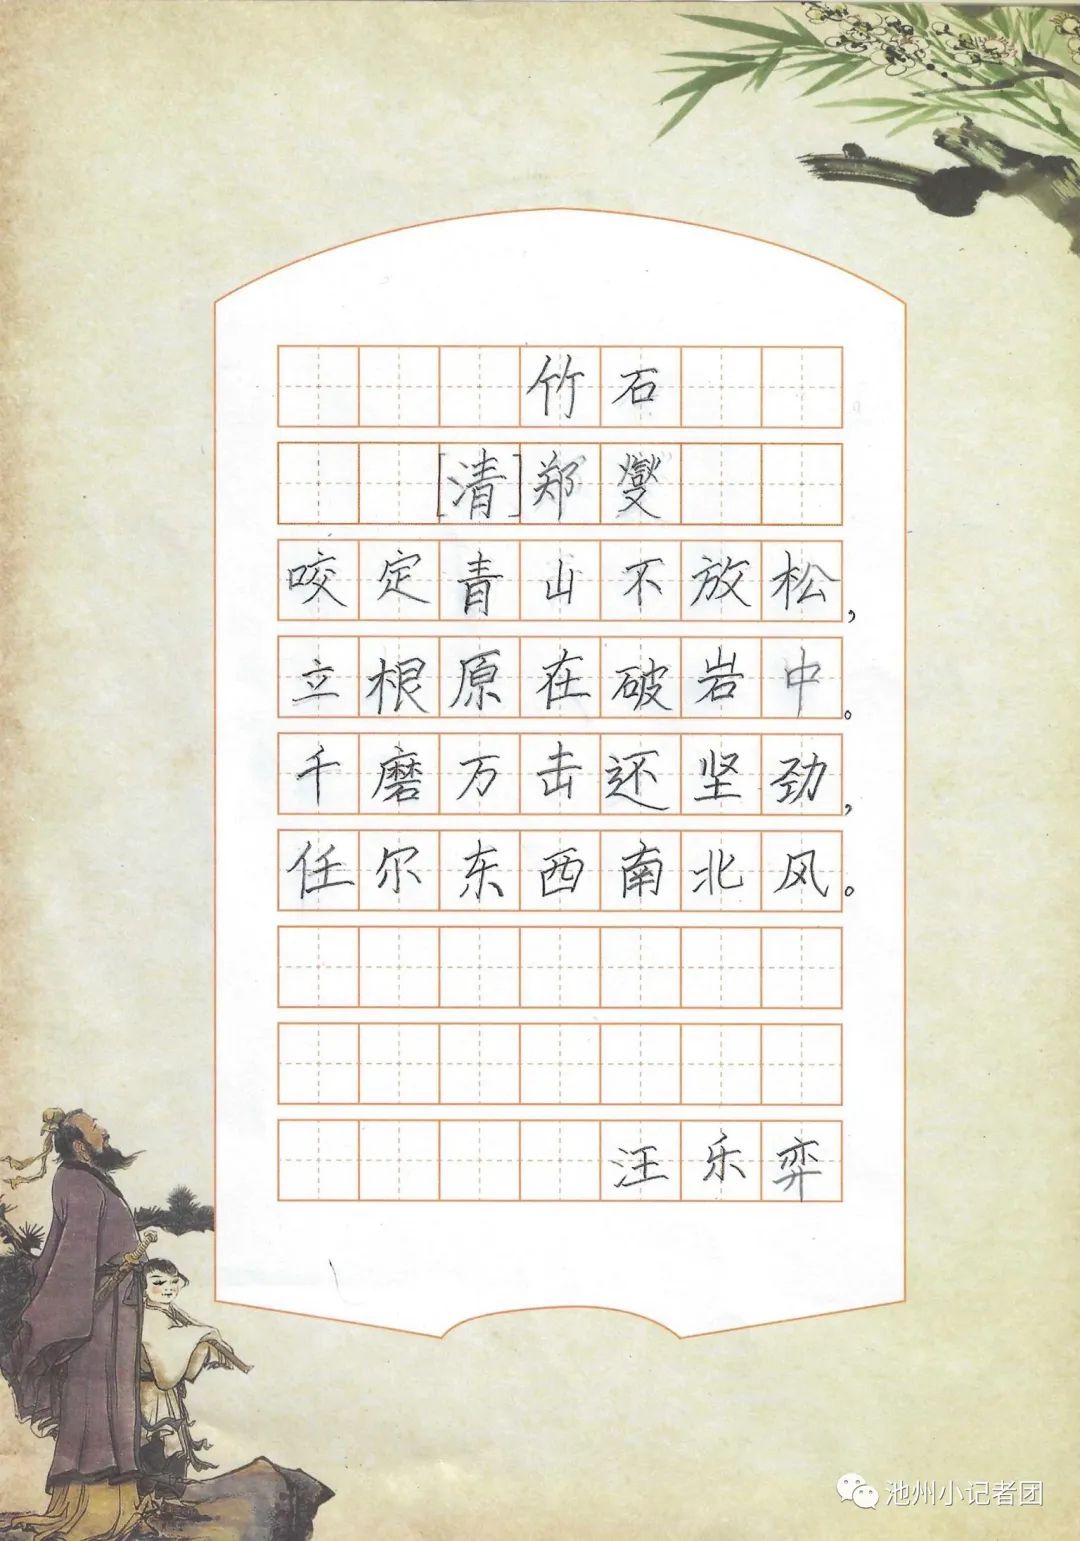 竹石
[清]郑燮
咬定青山不放松，
立根原在破岩中。
千磨万击还坚劲，
任尔东西南北风。
汪乐弈
池州小记者团